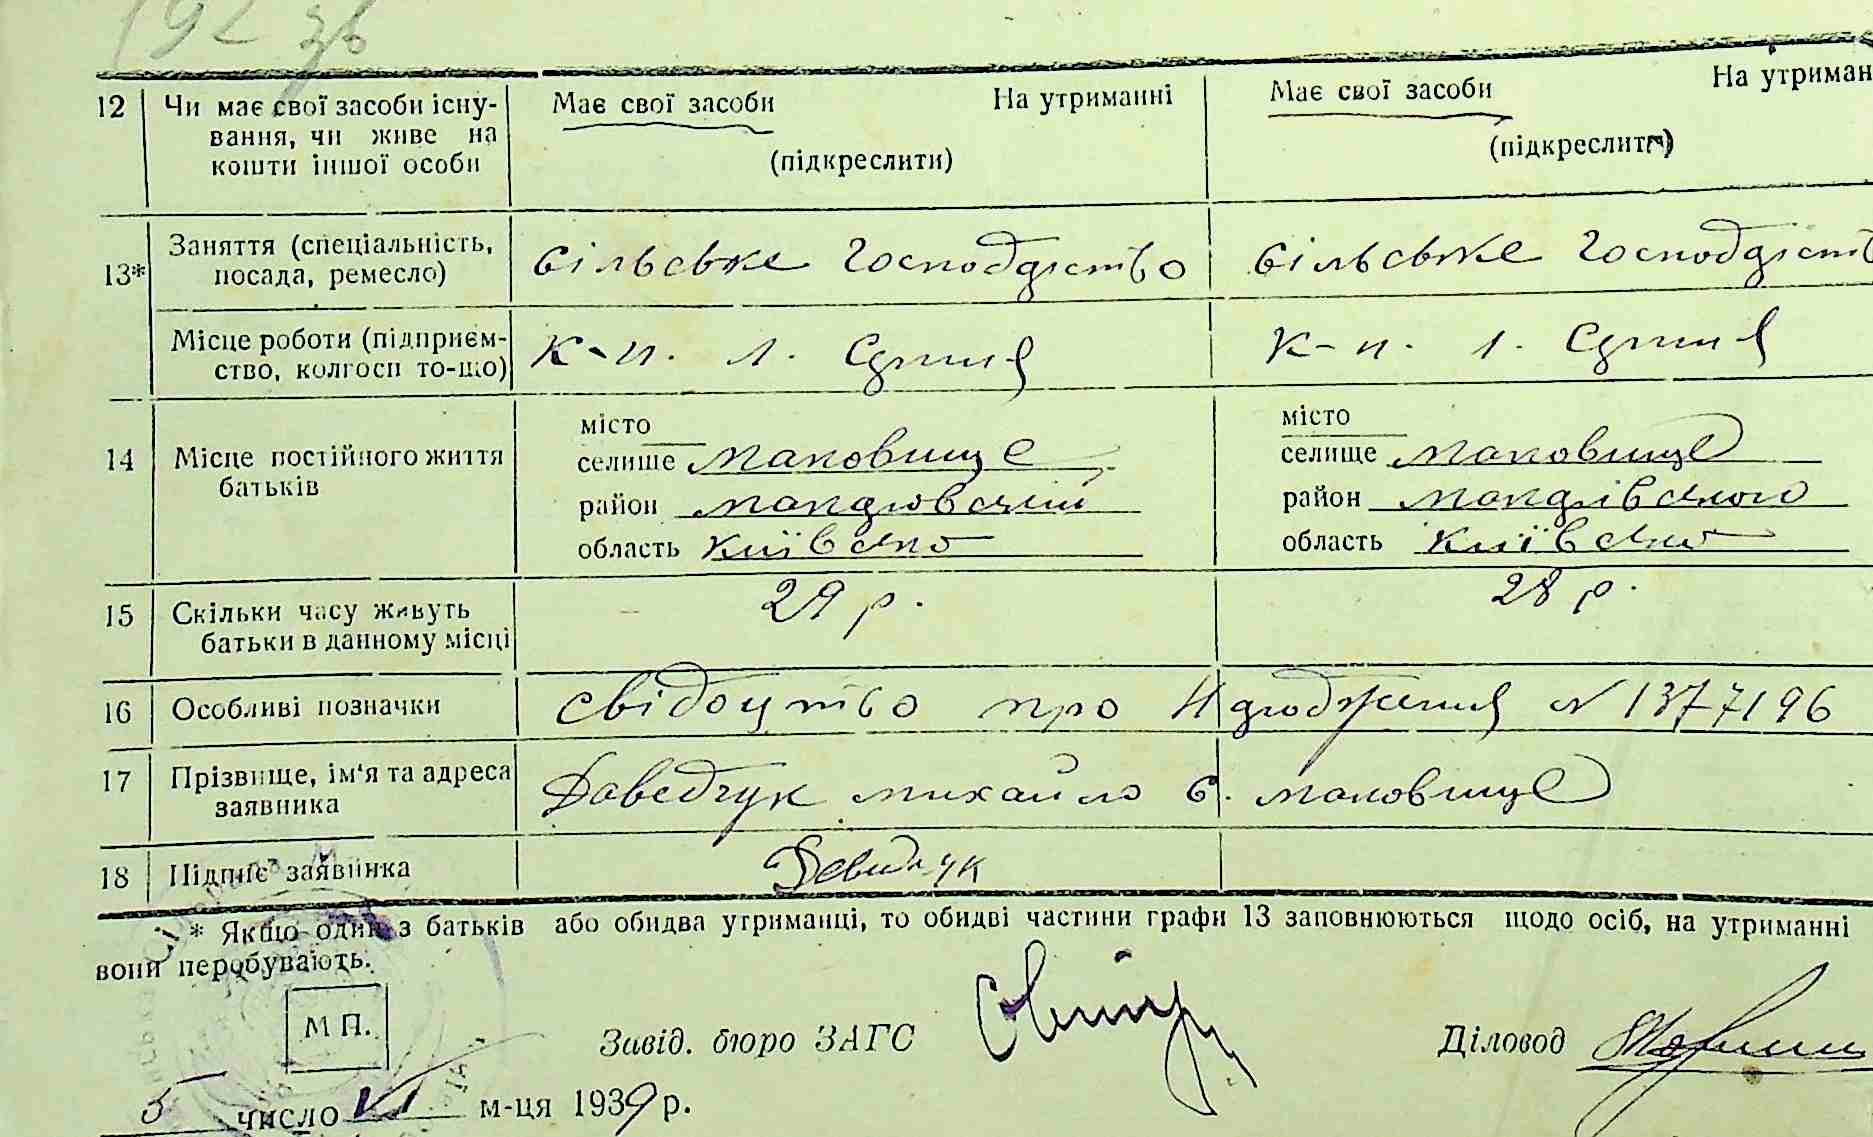 192 зв
12 Чи має свої засоби існу- Має свої засоби На утриманні Має свої засоби На утриман
вання, чи живе на
кошти іншої особи (підкреслити) (підкреслити)
13* Заняття (спеціальність, сільське Господрство сільське Господрств
посада, ремесло)
Місце роботи (підприєм- к-п. л. к-п. л.
ство, колгосп то-що)
місто місто
14 Місце постійного життя селище Маковище селище Маковище
батьків район район
область Київська область Київська
15 Скільки часу живуть 29 р. 28 р.
батьки в данному місці
16 Особливі позначки свідоцтво про Народження N 1377196
17 Прізвище, ім'я та адреса Даведчук Михайло с. Маковище
заявника
18 Підпис заявника
* Якщо один з батьків або обидва утриманці, то обидві частини графи 13 заповнюються щодо осіб, на утриманні
вони перебувають.
М П.
Завід. бюро ЗАГС Діловод
5 число VI м-ця 1939 р.